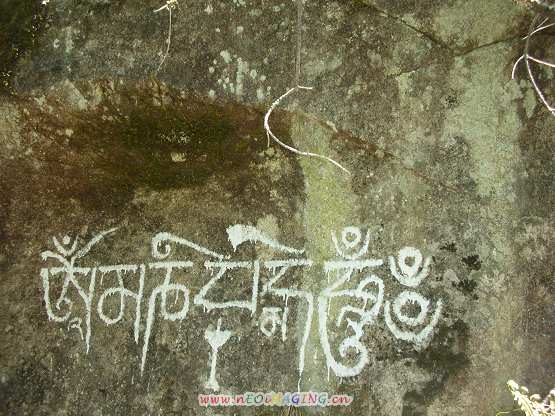 ཨོཾམཎིཔདྨེཧཱུྃཿ
www.nEOiMAGING.cn